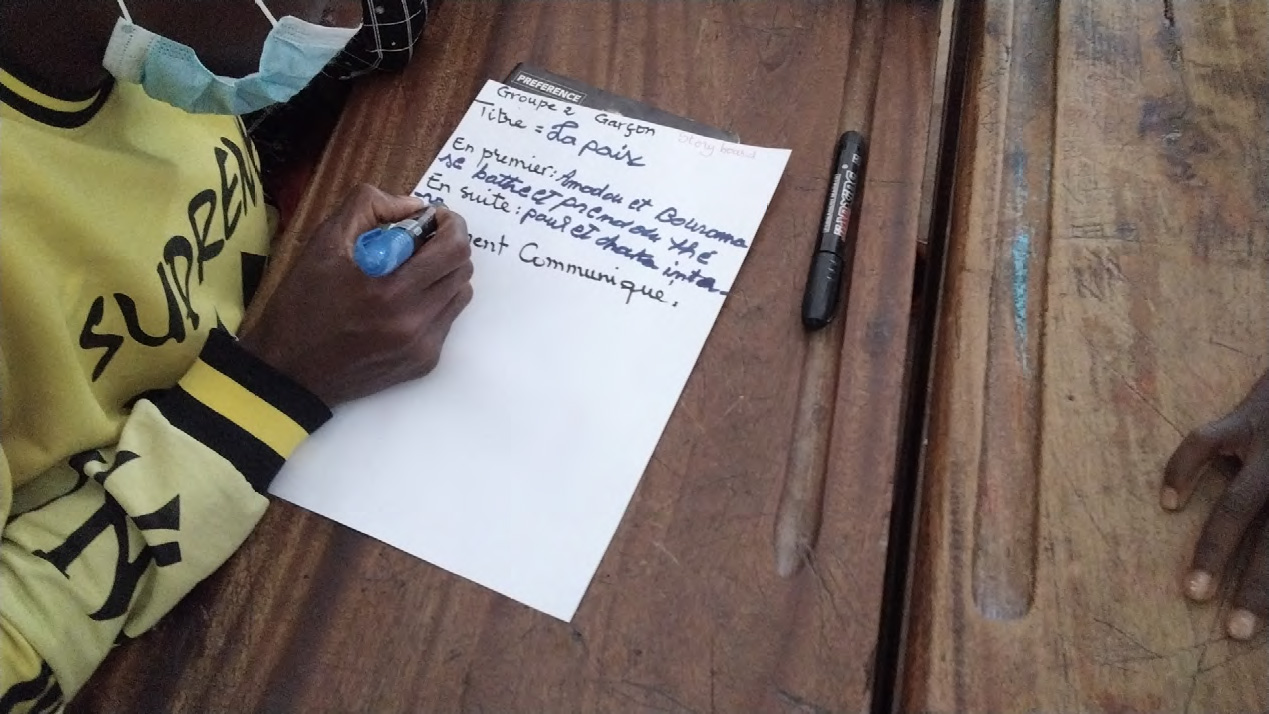 PREFERENCE
Groupe 2 Garçon
Story board
Titre = La paix
En premier: Amadou et Bourama
se bathe et prend du thé
En suite: paul et chaka inter-
ment Communique.
SUPREM